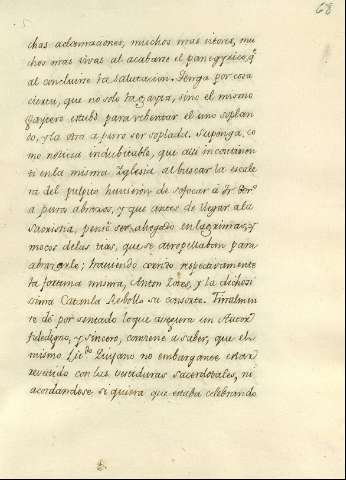 68
chas aclamaciones, muchos mas vitores, mu
chos mas vivas al acabarse el panegyrico, qe
al concluirse la salutacion. Tenga por cosa
cierta, que no solo la gayta, sino el mismo
gaytero estubo para rebentar el uno soplan
do, y la otra a puro ser soplada. Suponga, co
mo noticia indubitable, que alli incontinen
ti en la misma Iglesia al bajar la escale
ra del pulpito huvieron de sofocar a
a puros abrazos, y que antes de llegar a la
Sacristia, pensò ser ahogado en lagrimas, y
mocos de las tias, que se atropellaban para
abrazarle; haviendo corrido respectivamente
la fortuna misma, Anton Zotes, y la dichosi
sima Catanla Rebollo su consorte. Finalmen
te dè por sentado lo que asegura un Autor
fidedigno, y sincero, conviene a saber, que el
mismo Licdo Quijano no embargante estar
revestido con las vestiduras sacerdotales, ni
acordandose si quiera que estaba celebrando